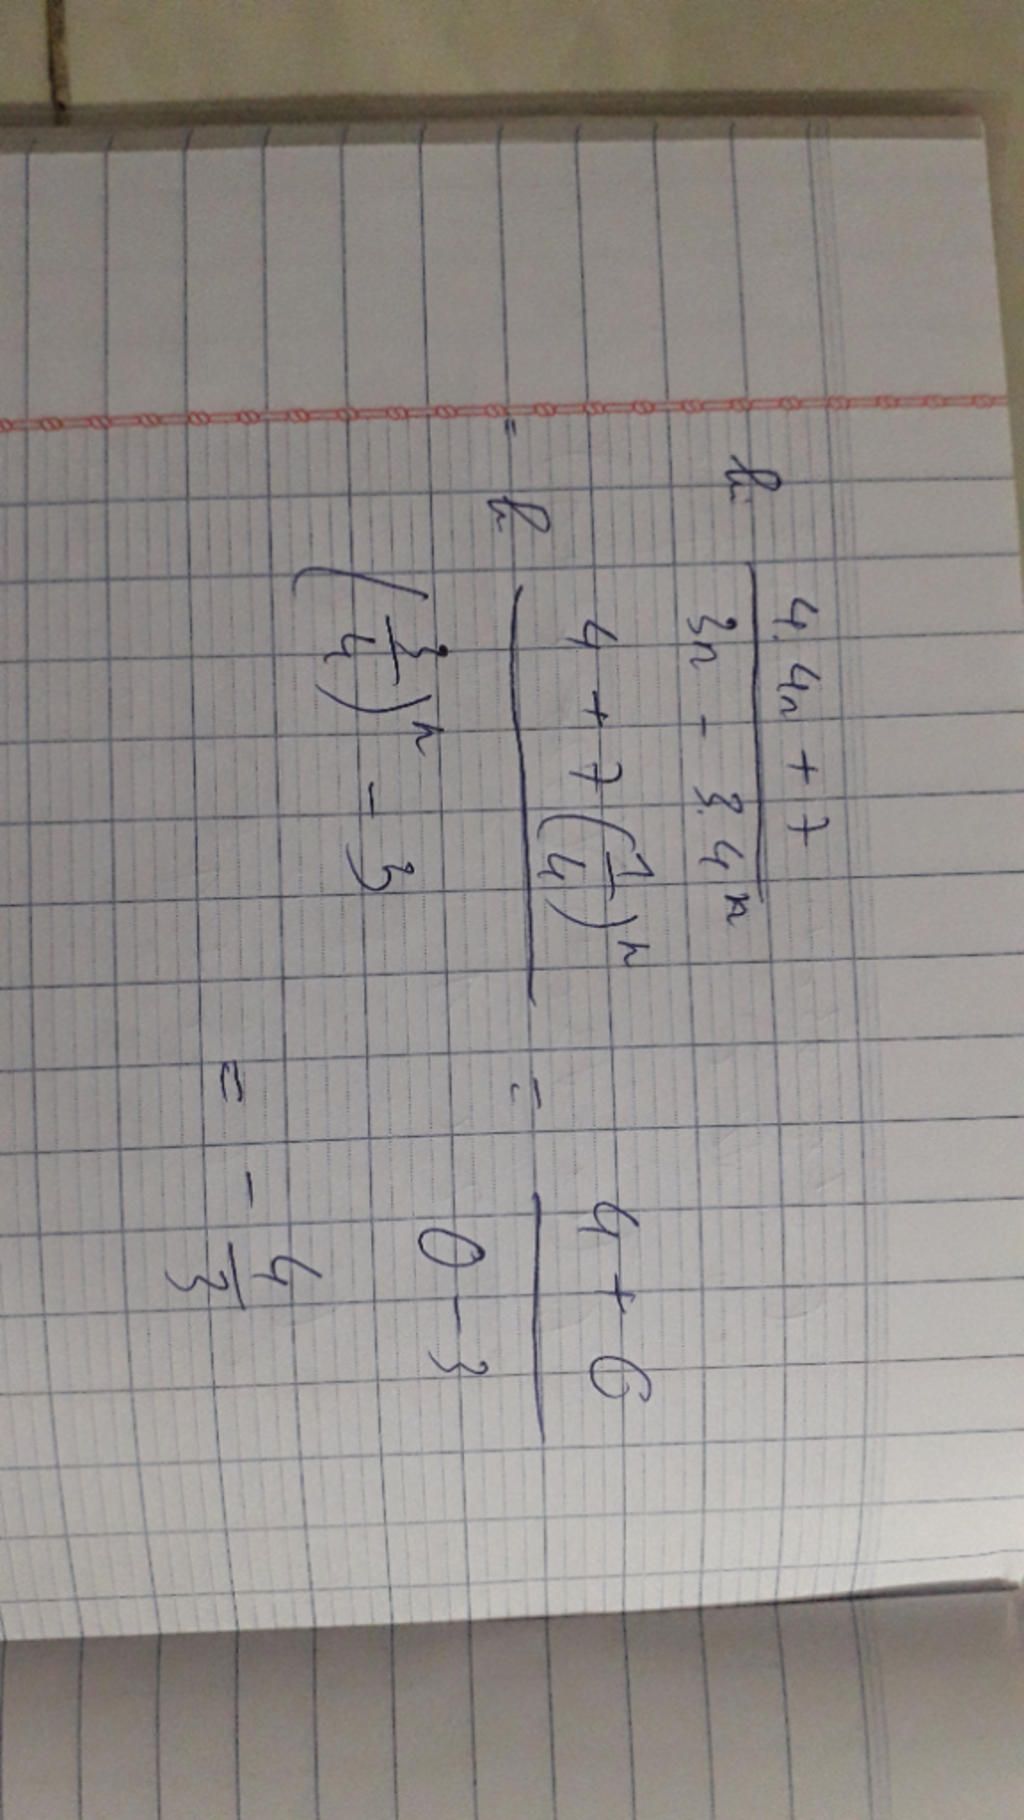 lim (4.4ⁿ + 7)/(3ⁿ - 3.4ⁿ)
= lim (4 + 7(1/4)ⁿ)/((3/4)ⁿ - 3) = (4 + 0)/(0 - 3)
= - 4/3